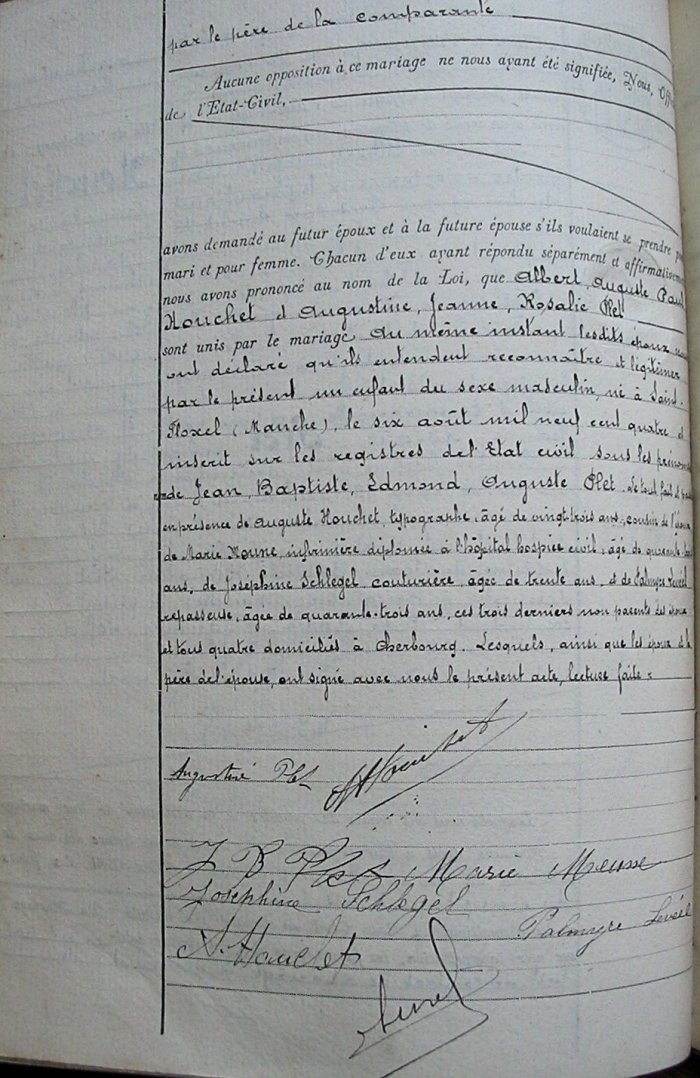 par le père de la comparante
Aucune opposition à ce mariage ne nous ayant été signifiée, Nous, Off
de l'Etat-Civil,
avons demandé au futur époux et à la future épouse s'ils voulaient se prendre
mari et pour femme. Chacun d'eux ayant répondu séparément et affirmativement
nous avons prononcé au nom de la Loi, que Albert, Auguste Paul
Houchet et Augustine, Jeanne, Rosalie Plet
sont unis par le mariage. Au même instant lesdits époux
ont déclaré qu'ils entendent reconnaître et légitimer
par le présent un enfant du sexe masculin, né à Saint-
Floxel (Manche), le six août mil neuf cent quatre et
inscrit sur les registres de l'Etat civil sous les prénoms
de Jean, Baptiste, Edmond, Auguste Plet. Le tout fait
en présence de Auguste Houchet, typographe, âgé de vingt-trois ans, cousin de l'époux
de Marie infirmière diplomée à l'hôpital hospice civil, âgé de quarante
ans, de Joséphine Schlegel couturière, âgée de trente ans, et de Palmyre
repasseuse, âgée de quarante-trois ans, ces trois derniers non parents des époux
et tous quatre domiciliés à Cherbourg. Lesquels, ainsi que les époux et le
père de l'épouse, ont signé avec nous le présent acte, lecture faite.
Augustine Plet
J B Plet Marie
Josephine Schlegel
Palmyre
A. Houchet